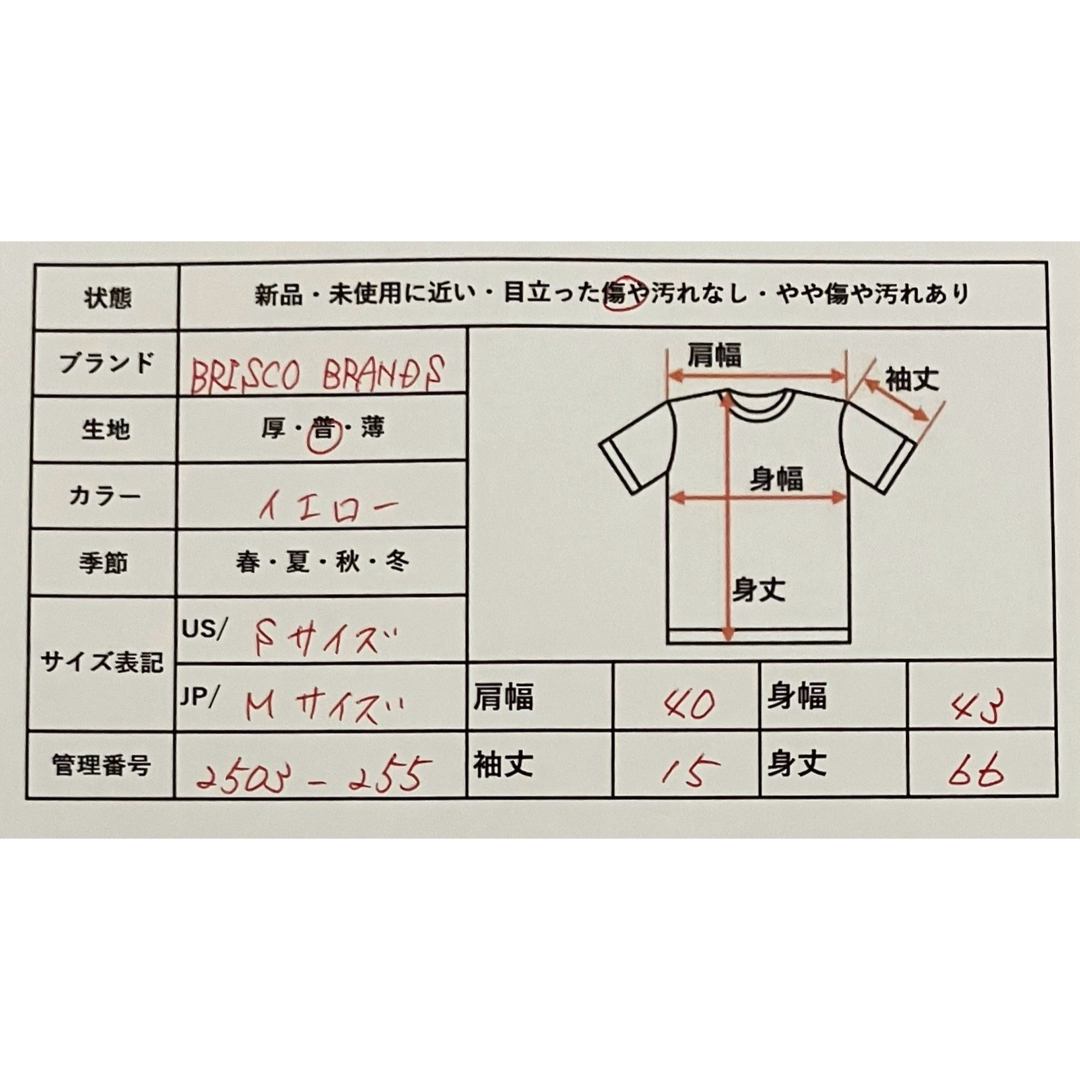 状態 新品・未使用に近い・目立った傷や汚れなし・やや傷や汚れあり
ブランド BRISCO BRANDS
生地 厚・普・薄
カラー イエロー
季節 春・夏・秋・冬
サイズ表記
US/ Sサイズ
JP/ Mサイズ
管理番号 2503-255
肩幅
袖丈
身幅
身丈
肩幅 40 身幅 43
袖丈 15 身丈 66